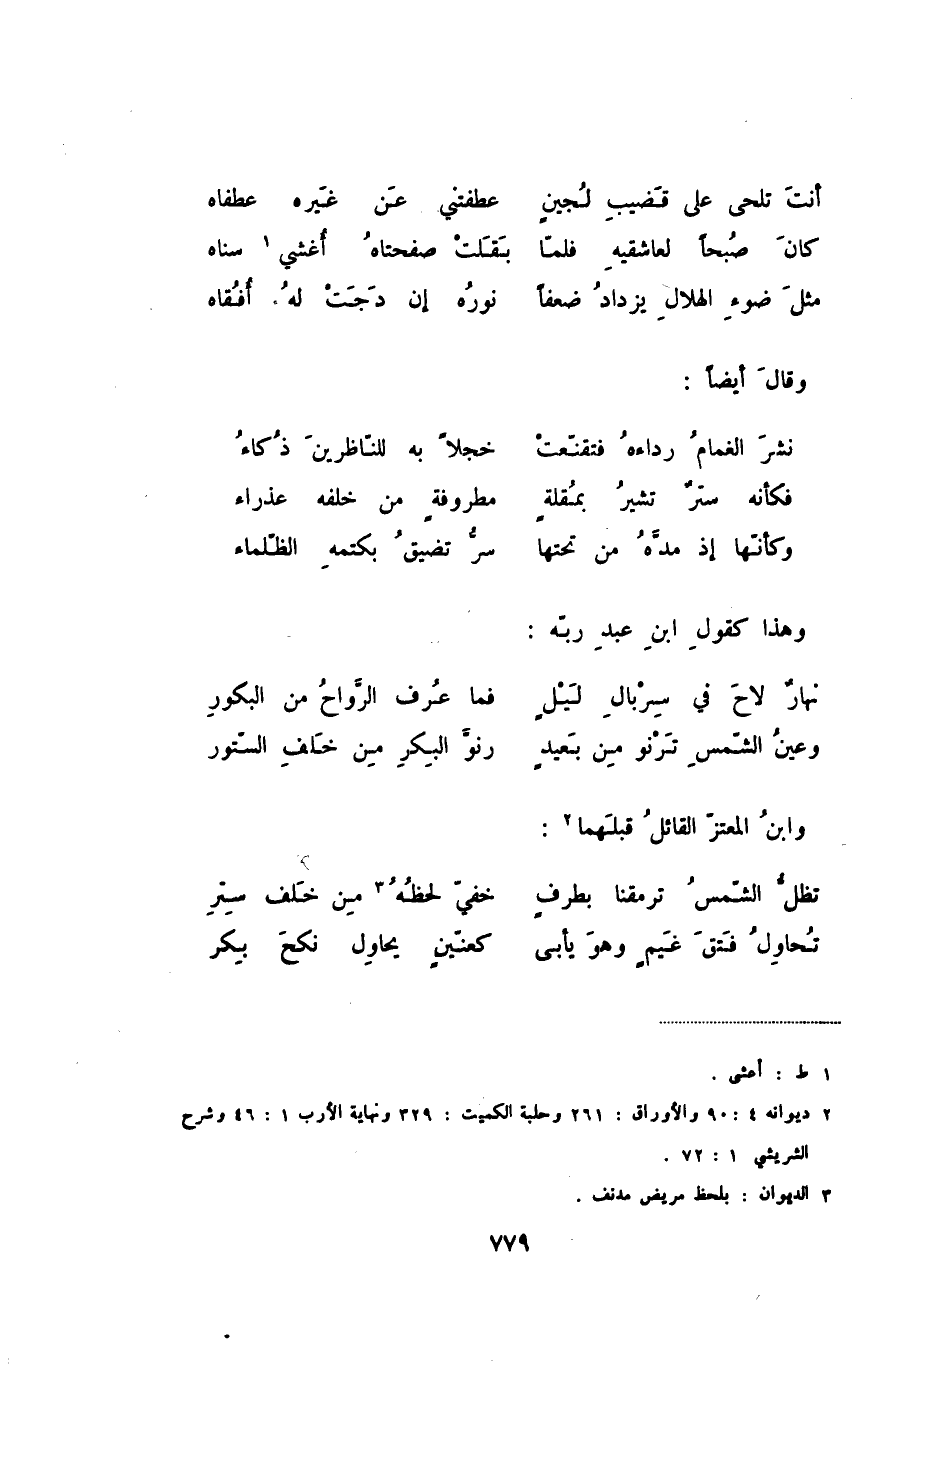 أنتَ تلحى على قَضيبِ لُجينٍ عطفتني عَن غَيره عطفاه
كانَ صُبحاً لعاشقيهِ فلمّا بَقَلَتْ صفحتاهُ أُغشي ١ سناه
مثلَ ضوءِ الهلالِ يزدادُ ضعفاً نورُه إن دَجَتْ لهُ أُفُقاه
وقالَ أيضاً :
نشرَ الغمامُ رداءهُ فتقنّعتْ خجلاً به للنّاظرينَ ذُكاءُ
فكأنه سترٌ تشيرُ بمُقلةٍ مطروفةٍ من خلفه عذراء
وكأنّها إذ مدَّهُ من تحتها سرٌّ تضيقُ بكتمهِ الظّلماء
وهذا كقولِ ابنِ عبدِ ربّه :
نهارٌ لاحَ في سِرْبالِ لَيْلٍ فما عُرف الرَّواحُ من البكورِ
وعينُ الشّمسِ تَرْنو مِن بَعيدٍ رنوَّ البِكرِ مِن خَلفِ السّتور
وابنُ المعتزّ القائلُ قبلَهما ٢ :
تظلُّ الشّمسُ ترمقنا بطرفٍ خفيّ لحظُهُ ٣ مِن خَلف سِترِ
تُحاوِلُ فَتقَ غَيمٍ وهوَ يأبى كعنّينٍ يحاوِل نكحَ بِكر
١ ط : أعشى .
٢ ديوانه ٤ : ٩٠ والأوراق : ٢٦١ وحلبة الكميت : ٣٢٩ ونهاية الأرب ١ : ٤٦ وشرح
الشريشي ١ : ٧٢ .
٣ الديوان : بلحظ مريض مدنف .
٧٧٩